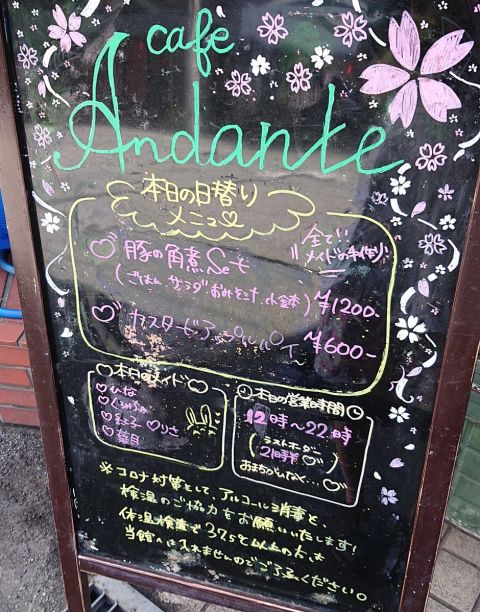 cafe
Andante
本日の日替り
メニュー♡
全て
メイドの手作り
♡豚の角煮Set
(ごはん サラダ おみそ汁 小鉢) ¥1200-
♡カスタードアップルパイ~ ¥600-
♡本日のメイド♡
♡ひな
♡くるみ
♡紅子 ♡りさ
♡葉月
本日の営業時間
12時~22時
(ラストオーダー
21時半♡)
おまちがいなく…♡
※コロナ対策として、アルコール消毒と、
検温のご協力をお願いいたします!
体温検査で37.5℃以上の方は
当館へは入れませんのでご了承ください。